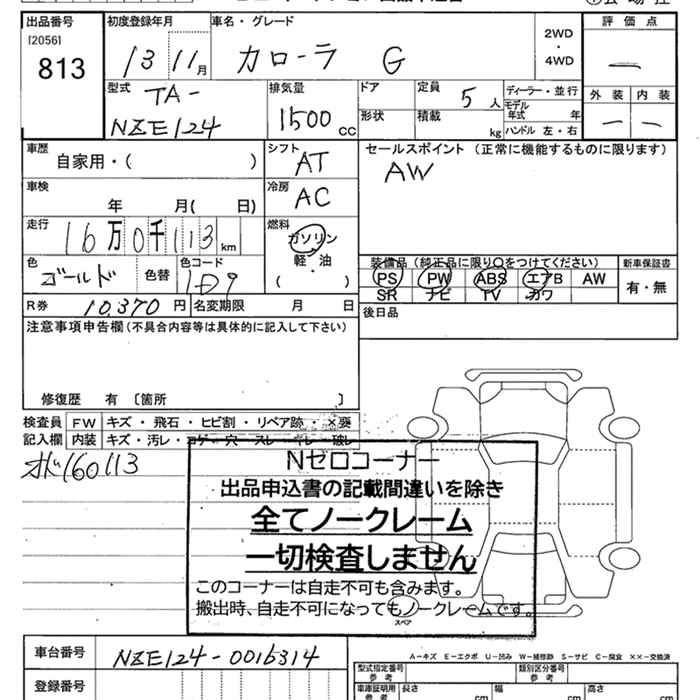 出品番号 初度登録年月 車名・グレード 2WD・4WD 評価点
[2056]
813 13 11月 カローラ G —
型式 排気量 ドア 定員 ディーラー・並行 外装 内装
TA- 1500cc 5人 モデル年式 年 — —
NZE124 形状 積載 kg ハンドル 左・右
車歴 シフト セールスポイント (正常に機能するものに限ります)
自家用・( ) AT AW
車検 冷房
年 月( 日) AC
走行 燃料
16万0千113km ガソリン
軽・油
( )
装備品 (純正品に限り○をつけてください) 新車保証書
色 色替 色コード PS PW ABS エアB AW 有・無
ゴールド SR ナビ TV カワ
R券 10,370円 名変期限 月 日 後日品
注意事項申告欄(不具合内容等は具体的に記入して下さい)
修復歴 有 〔箇所 〕
検査員 FW キズ・飛石・ヒビ割・リペア跡・×要
記入欄 内装 キズ・汚レ・コゲ・穴・スレ・キレ・破レ
160113
Nゼロコーナー
出品申込書の記載間違いを除き
全てノークレーム
一切検査しません
このコーナーは自走不可も含みます。
搬出時、自走不可になってもノークレームです。
スペア
A-キズ E-エクボ U-凹み W-補修跡 S-サビ C-腐食 ××-交換済
車台番号 NZE124-0016314 型式指定番号 参考 類別区分番号 参考
登録番号 車庫証明用 参考 長さ cm 幅 cm 高さ cm